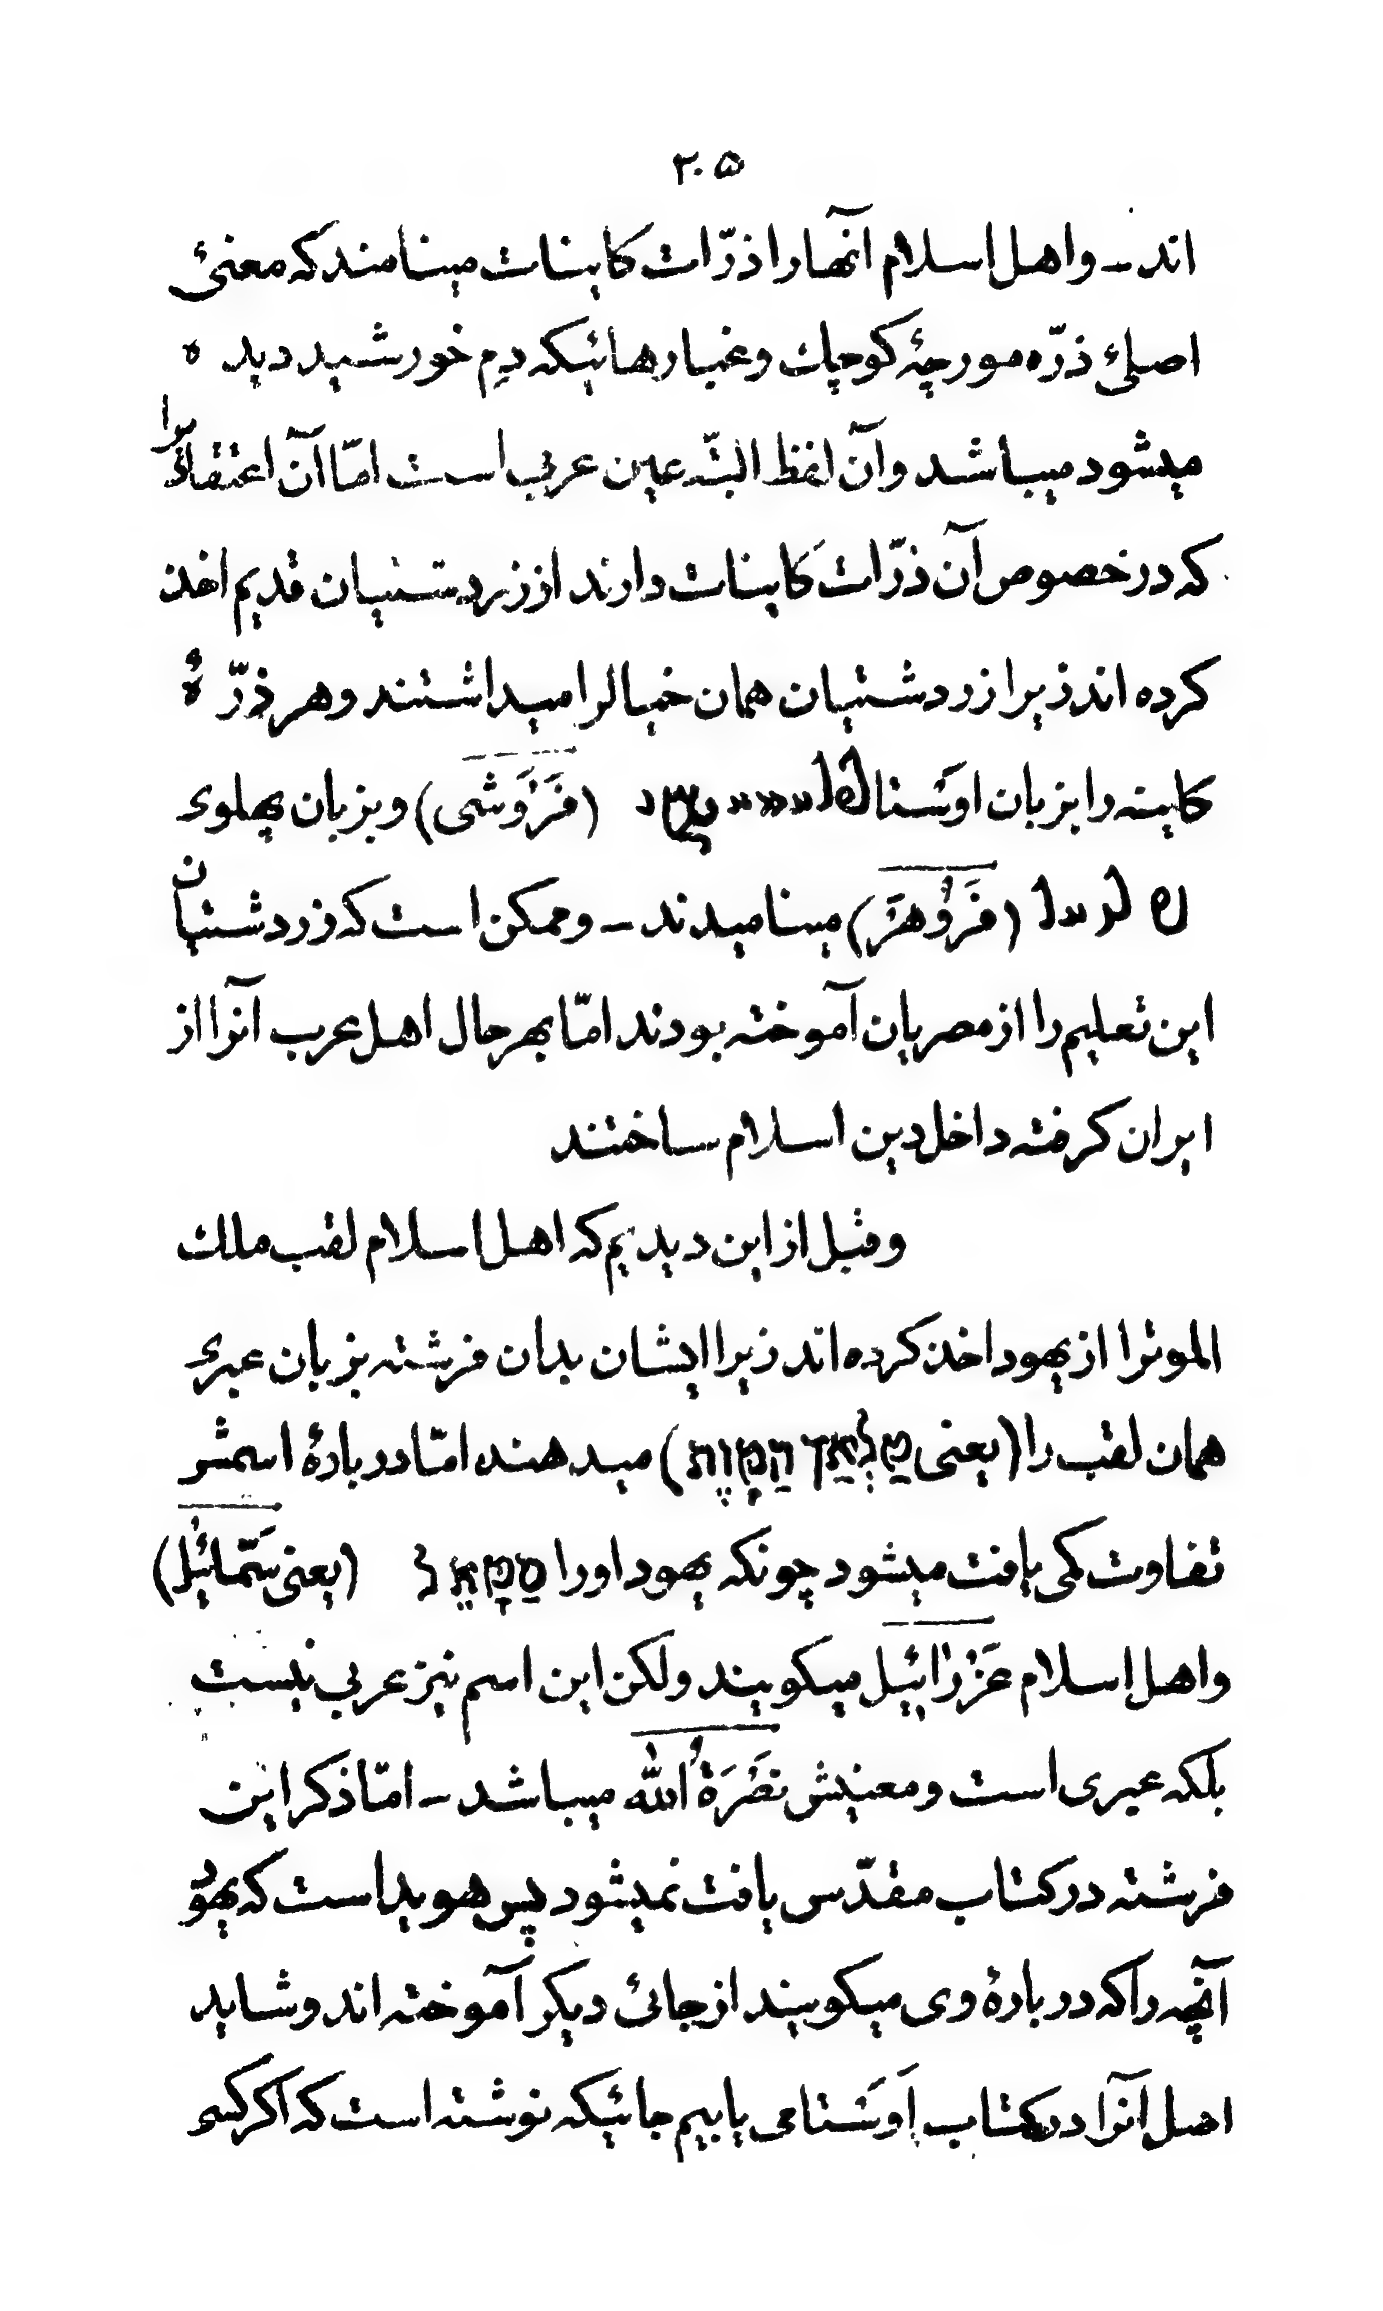 ۲۰۵
اند ـ واهل اسلام آنها را ذرّات کاینات مینامند که معنئ
اصلئ ذرّه مورچهٔ کوچک وغبارهائیکه دمِ خورشید دیده
میشود میباشد وآن لفظ البتّه عین عربی است امّا آن اعتقادیرا
که در خصوص آن ذرّات کاینات دارند از زردشتیان قدیم اخذ
کرده اند زیرا زردشتیان همان خیالرا میداشتند وهر ذرّهٔ
کاینه را بزبان اوَستا (فَرَوَشی) وبزبان پهلوی
(فَرَوُهَرَ) مینامیدند ـ وممکن است که زردشتیان
این تعلیم را از مصریان آموخته بودند امّا بهر حال اهل عرب آنرا از
ایران گرفته داخل دین اسلام ساختند
وقبل از این دیدیم که اهل اسلام لقب ملک
الموترا از یهود اخذ کرده اند زیرا ایشان بدان فرشته بزبان عبری
همان لقب را (یعنی מַלְאַךְ הַמָּוֶת) میدهند امّا در بارهٔ اسمش
تفاوت کمی یافت میشود چونکه یهود اورا סַמָּאֵל (یعنی سَمّائیل)
واهل اسلام عَزْرائیل میگویند ولکن این اسم نیز عربی نیست
بلکه عبری است ومعنیش نَصْرَةُ اللّٰه میباشد ـ امّا ذکر این
فرشته در کتاب مقدّس یافت نمیشود پس هویدا است که یهود
آنچه را که در بارهٔ وی میگویند از جائی دیگر آموخته اند وشاید
اصل آنرا در کتاب اَوَستا می یابیم جائیکه نوشته است که اگر کسی